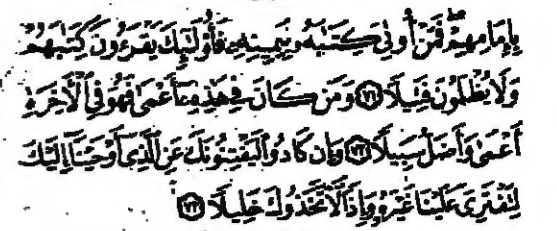 بِإِمَٰمِهِمْ فَمَنْ أُوتِىَ كِتَٰبَهُۥ بِيَمِينِهِۦ فَأُو۟لَٰٓئِكَ يَقْرَءُونَ كِتَٰبَهُمْ
وَلَا يُظْلَمُونَ فَتِيلًا ٧١ وَمَن كَانَ فِى هَٰذِهِۦٓ أَعْمَىٰ فَهُوَ فِى ٱلْأَخِرَةِ
أَعْمَىٰ وَأَضَلُّ سَبِيلًا ٧٢ وَإِن كَادُوا۟ لَيَفْتِنُونَكَ عَنِ ٱلَّذِىٓ أَوْحَيْنَآ إِلَيْكَ
لِتَفْتَرِىَ عَلَيْنَا غَيْرَهُۥ وَإِذًا لَّٱتَّخَذُوكَ خَلِيلًا ٧٣